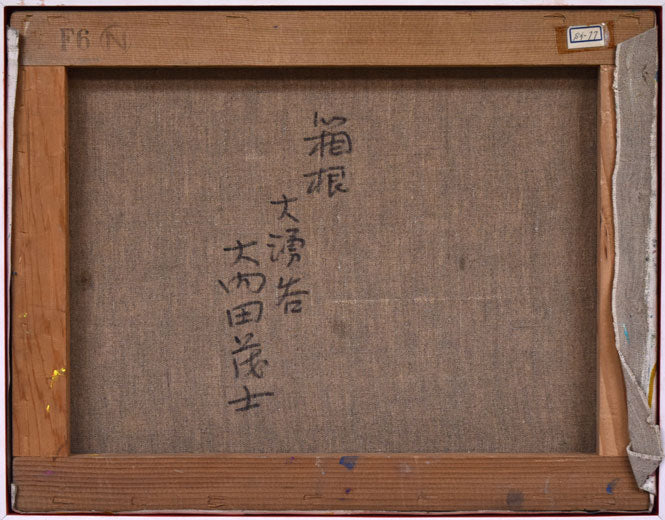 F6 N
84-77
箱根
大湧谷
大内田茂士